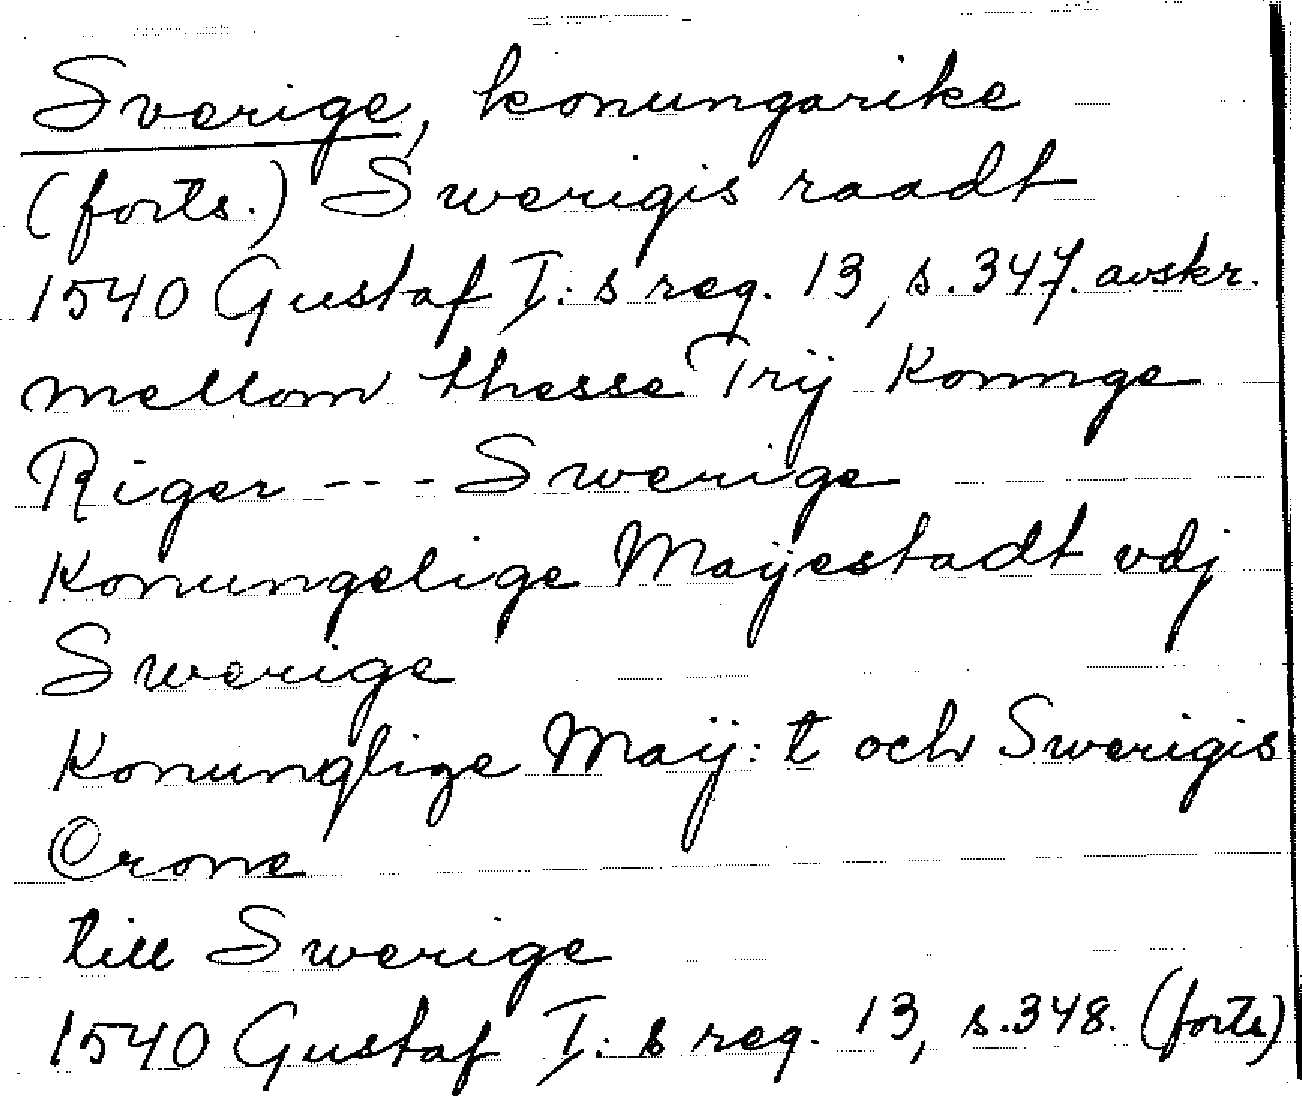 Sverige, konungarike
(forts.) Swerigis raadt
1540 Gustaf I:s reg. 13, s. 347. avskr.
mellom thesse Trij Konnge
Riger --- Swerige
Konungelige Mayestadt vdj
Swerige
Konunglige Maij:t och Swerigis
Crone
till Swerige
1540 Gustaf I:s reg. 13, s. 348. (forts)